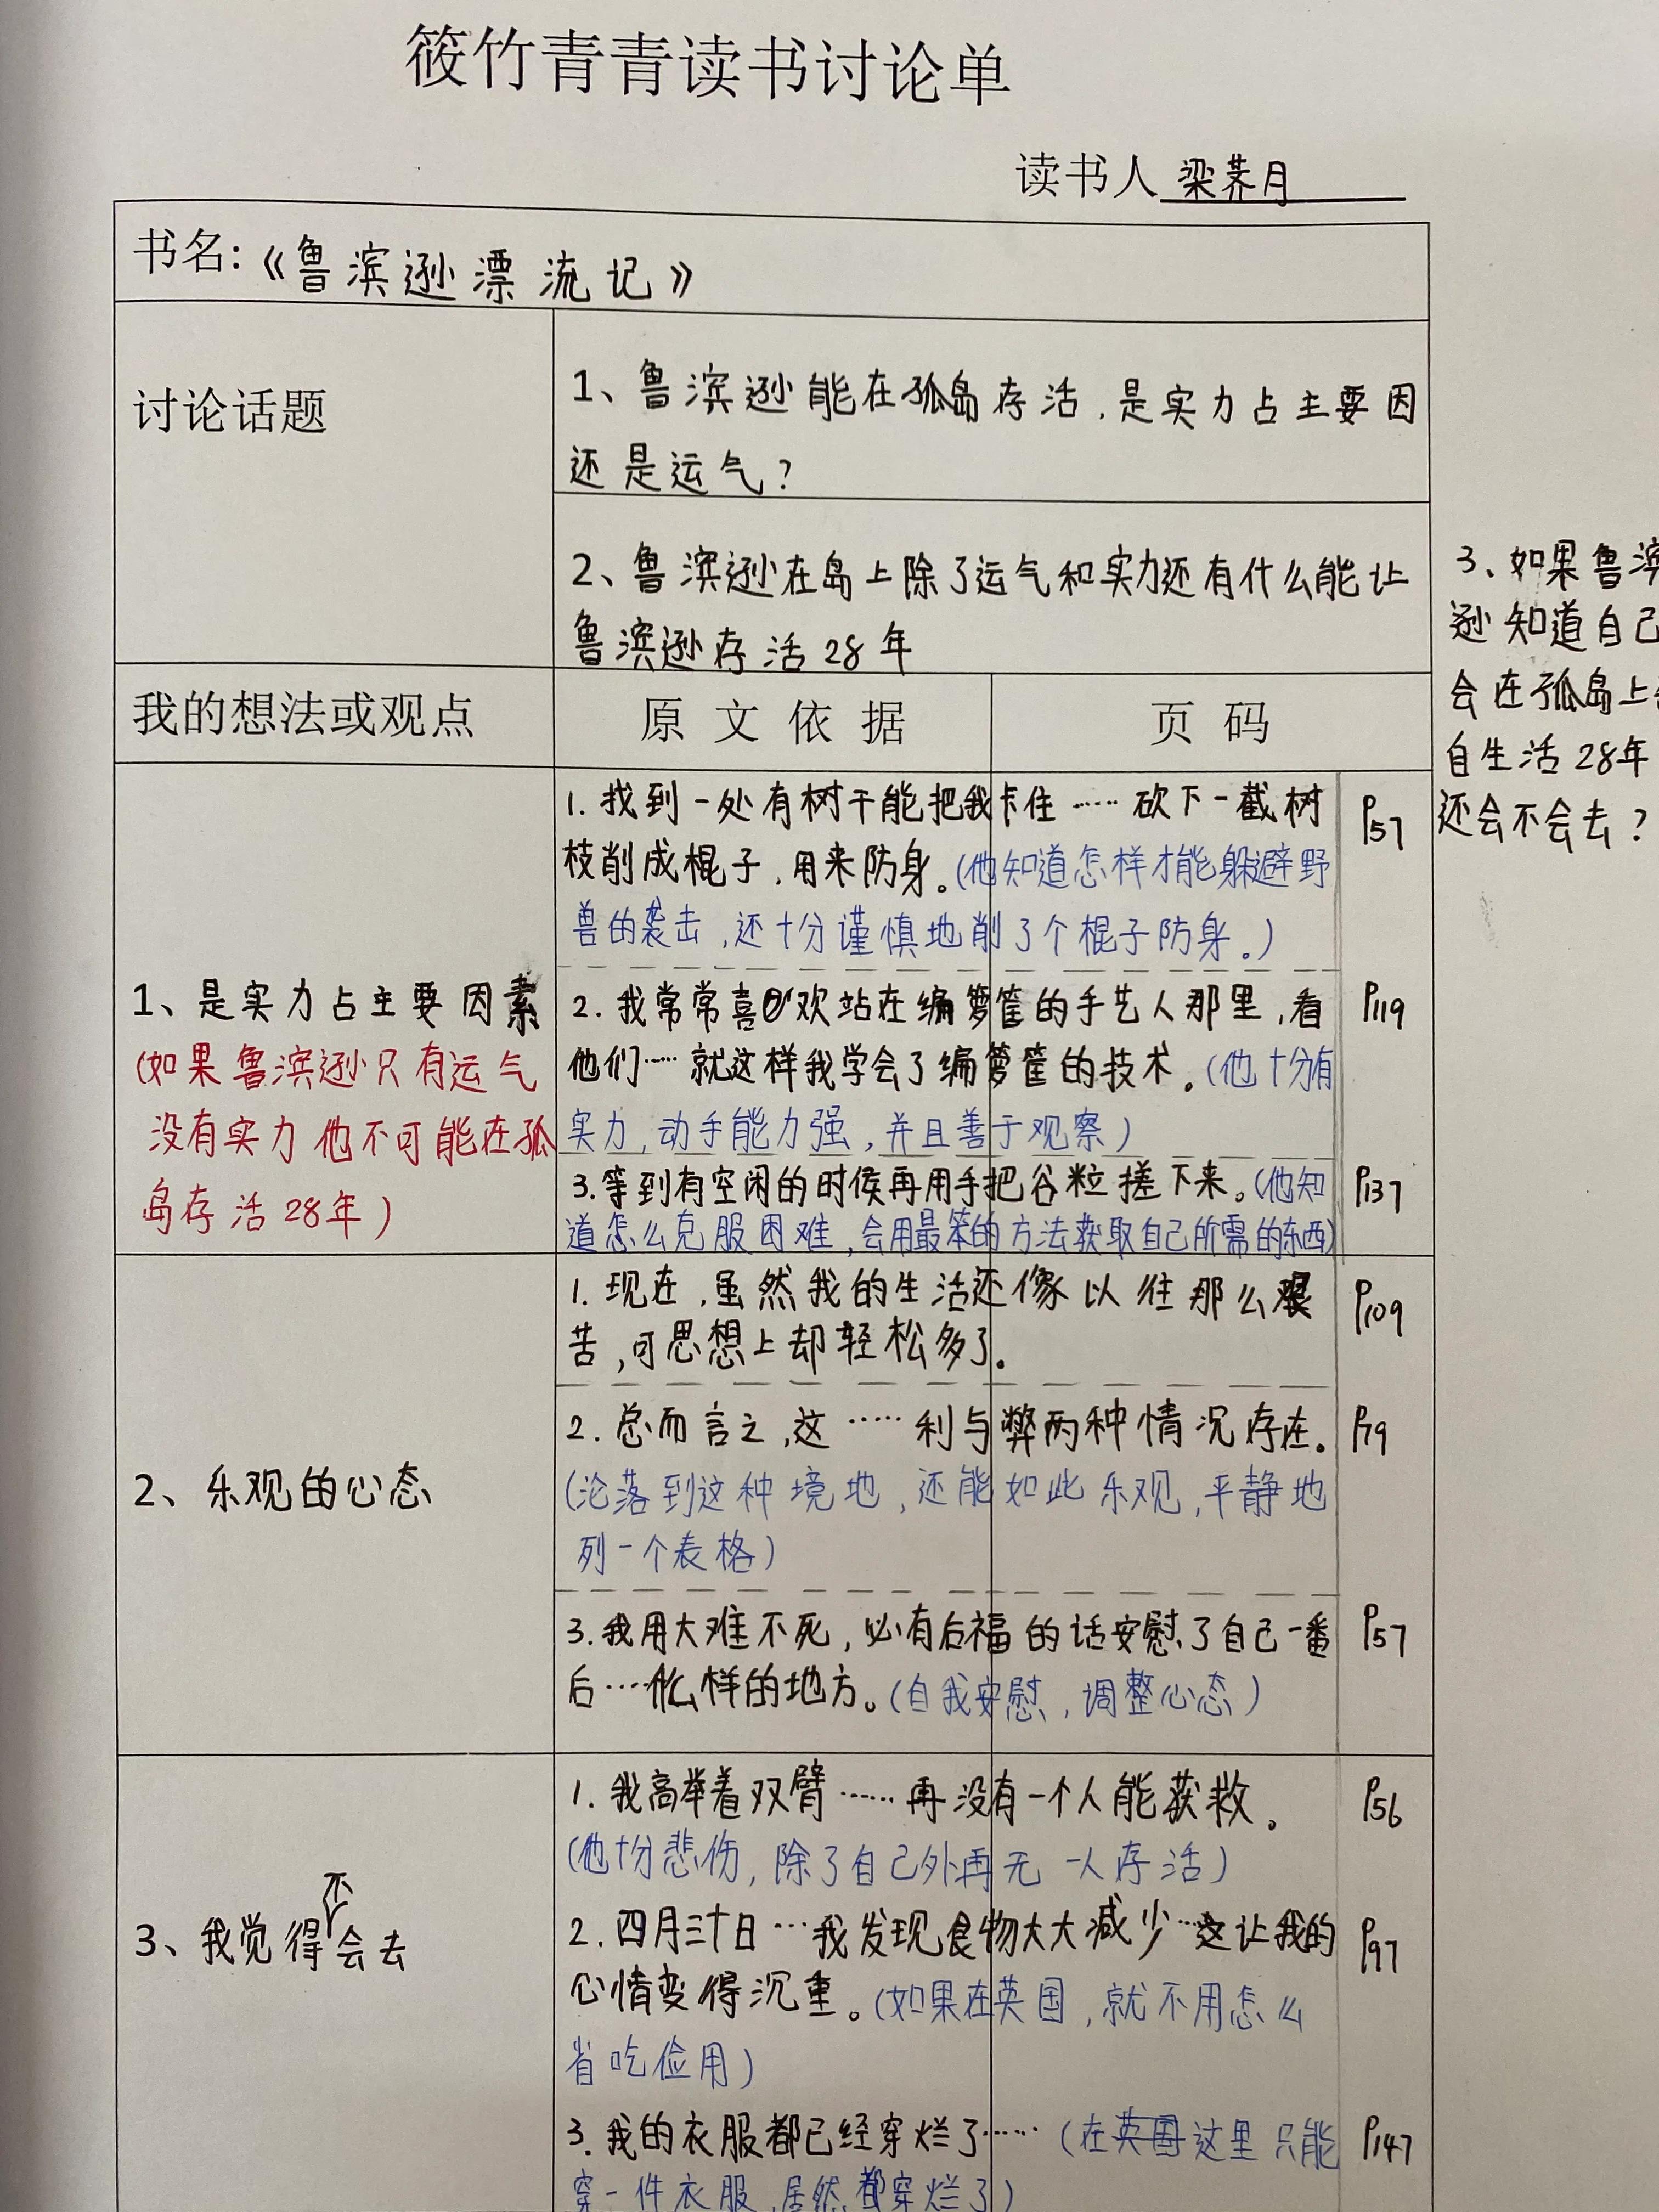 筱竹青青读书讨论单
读书人 梁荞月
书名:《鲁滨逊漂流记》
讨论话题
1、鲁滨逊能在孤岛存活，是实力占主要因
还是运气？
2、鲁滨逊在岛上除了运气和实力还有什么能让
鲁滨逊存活28年
3、如果鲁滨
逊知道自己
会在孤岛上
自生活28年
还会不会去？
我的想法或观点
原文依据
页码
1、是实力占主要因素
(如果鲁滨逊只有运气
没有实力他不可能在孤
岛存活28年)
1. 找到一处有树干能把我卡住……砍下一截树
枝削成棍子，用来防身。(他知道怎样才能躲避野
兽的袭击，还十分谨慎地削了个棍子防身。)
P57
2. 我常常喜欢站在编箩筐的手艺人那里，看
他们……就这样我学会了编箩筐的技术。(他十分有
实力，动手能力强，并且善于观察)
P119
3. 等到有空闲的时侯再用手把谷粒搓下来。(他知
道怎么克服困难，会用最笨的方法获取自己所需的东西)
P137
2、乐观的心态
1. 现在，虽然我的生活还像以往那么艰
苦，可思想上却轻松多了。
P109
2. 总而言之，这……利与弊两种情况存在。
(沦落到这种境地，还能如此乐观，平静地
列一个表格)
P79
3. 我用大难不死，必有后福的话安慰了自己一番
后……什么样的地方。(自我安慰，调整心态)
P57
3、我觉得不会去
1. 我高举着双臂……再没有一个人能获救。
(他十分悲伤，除了自己外再无一人存活)
P56
2. 四月三十日…我发现食物大大减少…这让我的
心情变得沉重。(如果在英国，就不用怎么
省吃俭用)
P97
3. 我的衣服都已经穿烂了……(在英国这里只能
穿一件衣服，居然都穿烂了)
P147